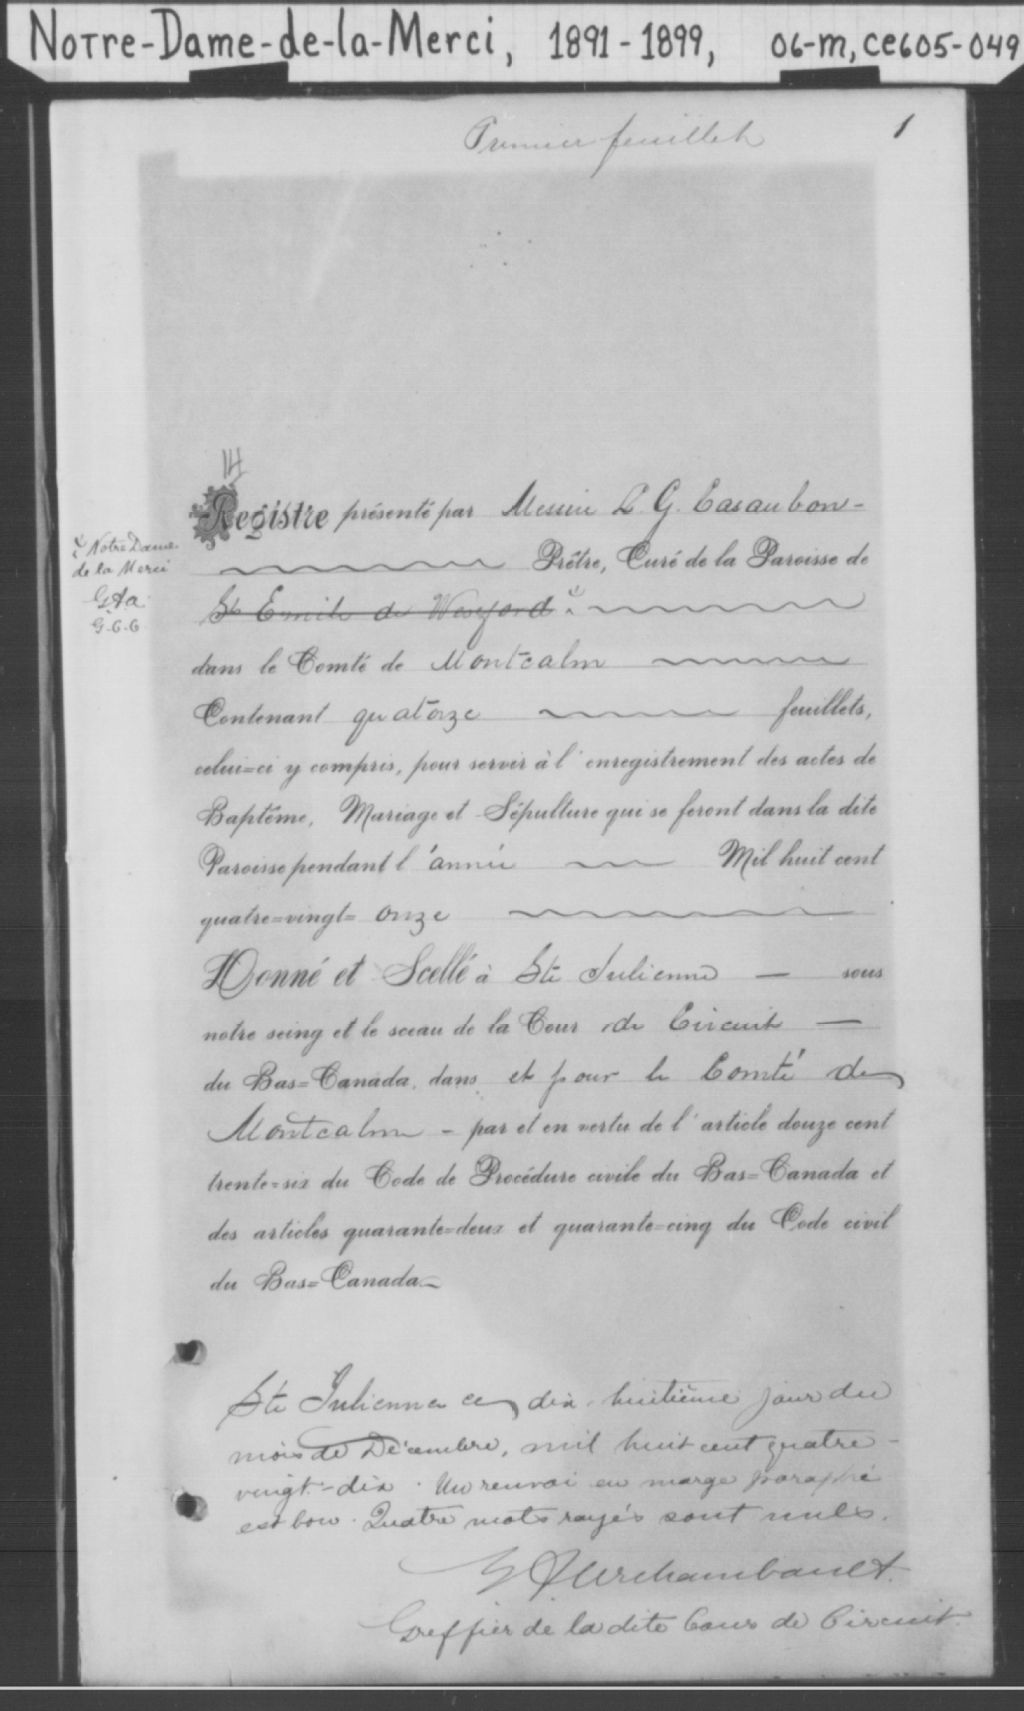 Notre-Dame-de-la-Merci, 1891-1899, 06-M, CE605-049
Premier feuillet
1
14
Registre présenté par Messire L. G. Casaubon -
Prêtre, Curé de la Paroisse de
Notre Dame
de la Merci
G.A.a.
G.C.C.
St Emile de Wexford
dans le Comté de Montcalm
Contenant quatorze feuillets,
celui=ci y compris, pour servir à l'enregistrement des actes de
Baptême, Mariage et Sépulture qui se feront dans la dite
Paroisse pendant l'année Mil huit cent
quatre=vingt= onze
Donné et Scellé à Ste Julienne — sous
notre seing et le sceau de la Cour de Circuit —
du Bas=Canada, dans et pour le Comté de
Montcalm - par et en vertu de l'article douze cent
trente=six du Code de Procédure civile du Bas=Canada et
des articles quarante=deux et quarante=cinq du Code civil
du Bas=Canada
Ste Julienne ce dix-huitième jour du
mois de Décembre, mil huit cent quatre-
vingt-dix. Un renvoi en marge paraphé
est bon. Quatre mots rayés sont nuls.
Archambault
Greffier de la dite Cour de Circuit.